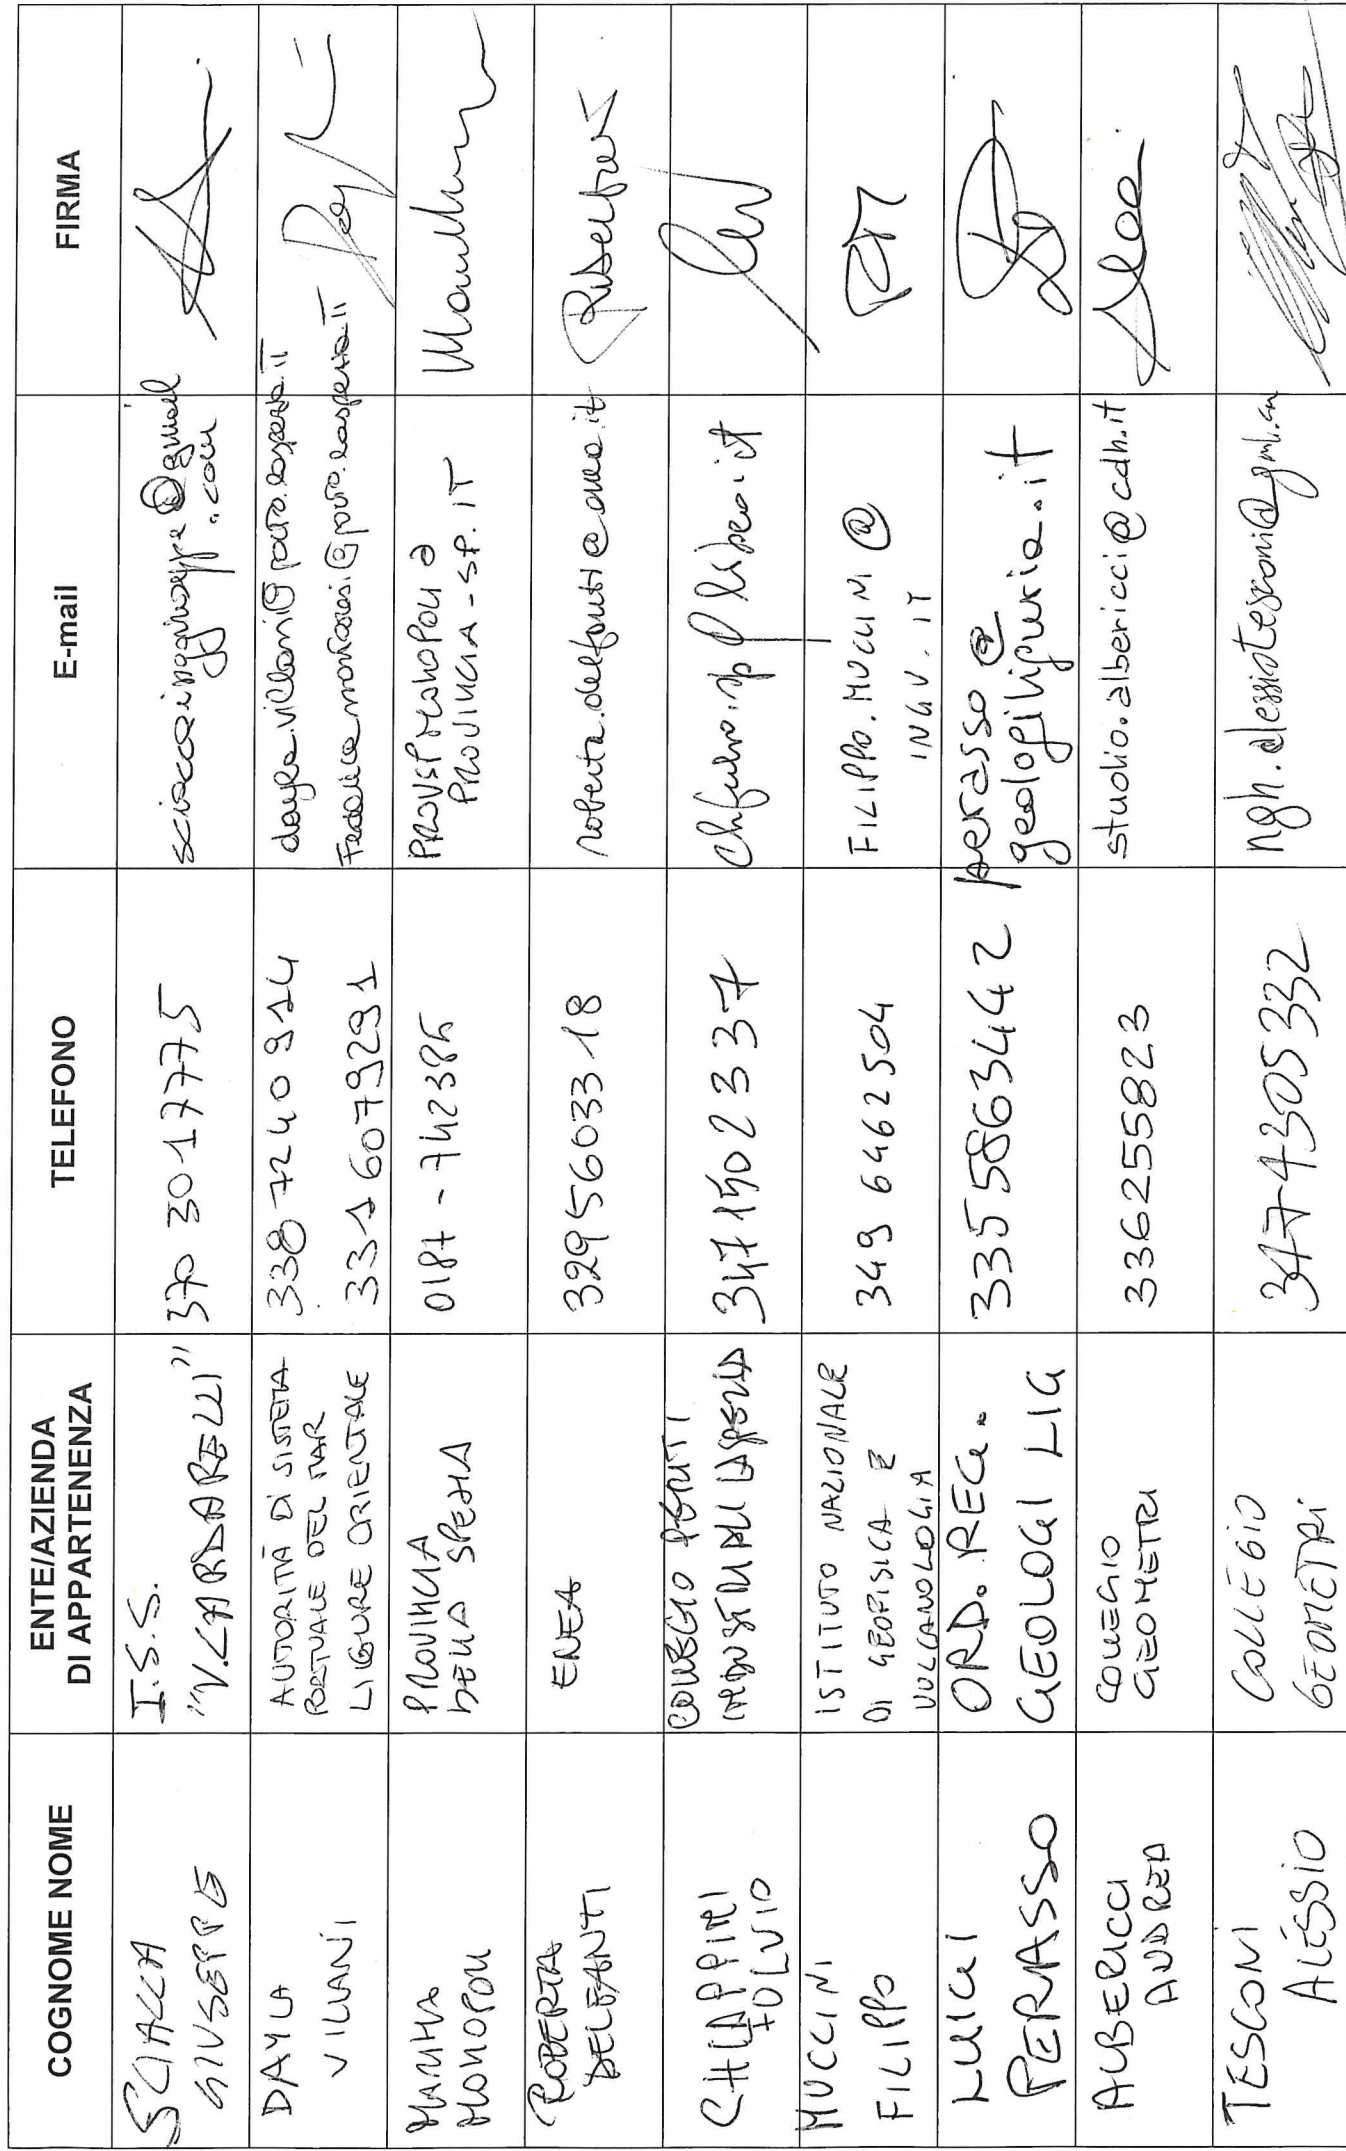 COGNOME NOME
ENTE/AZIENDA
DI APPARTENENZA
TELEFONO
E-mail
FIRMA
SCIACCA
GIUSEPPE
I.S.S.
"V.CARDARELLI"
370 3017775
sciaccainggiuseppe@gmail
.com
DAYLA
VILLANI
AUTORITÀ DI SISTEMA
PORTUALE DEL MAR
LIGURE ORIENTALE
338 7240914
331 6079291
dayla.villani@porto.laspezia.it
MONOPOLI
PROVINCIA
DELLA SPEZIA
0187-742386
PROVINCIA-SP.IT
ROBERTA
DELFANTI
ENEA
3295603318
roberta.delfanti@enea.it
CHIAPPINI
FULVIO
COLLEGIO PERITI
INDUSTRIALI LA SPEZIA
3471502337
MUCCINI
FILIPPO
ISTITUTO NAZIONALE
DI GEOFISICA E
VULCANOLOGIA
349 6462504
FILIPPO.MUCCINI@
INGV.IT
LUIGI
PERASSO
ORD.REG.
GEOLOGI LIG
335 5863442
perasso@
geologiliguria.it
ALBERICCI
ANDREA
COLLEGIO
GEOMETRI
336255823
studio.albericci@cdh.it
TESCONI
ALESSIO
COLLEGIO
GEOMETRI
3474305332